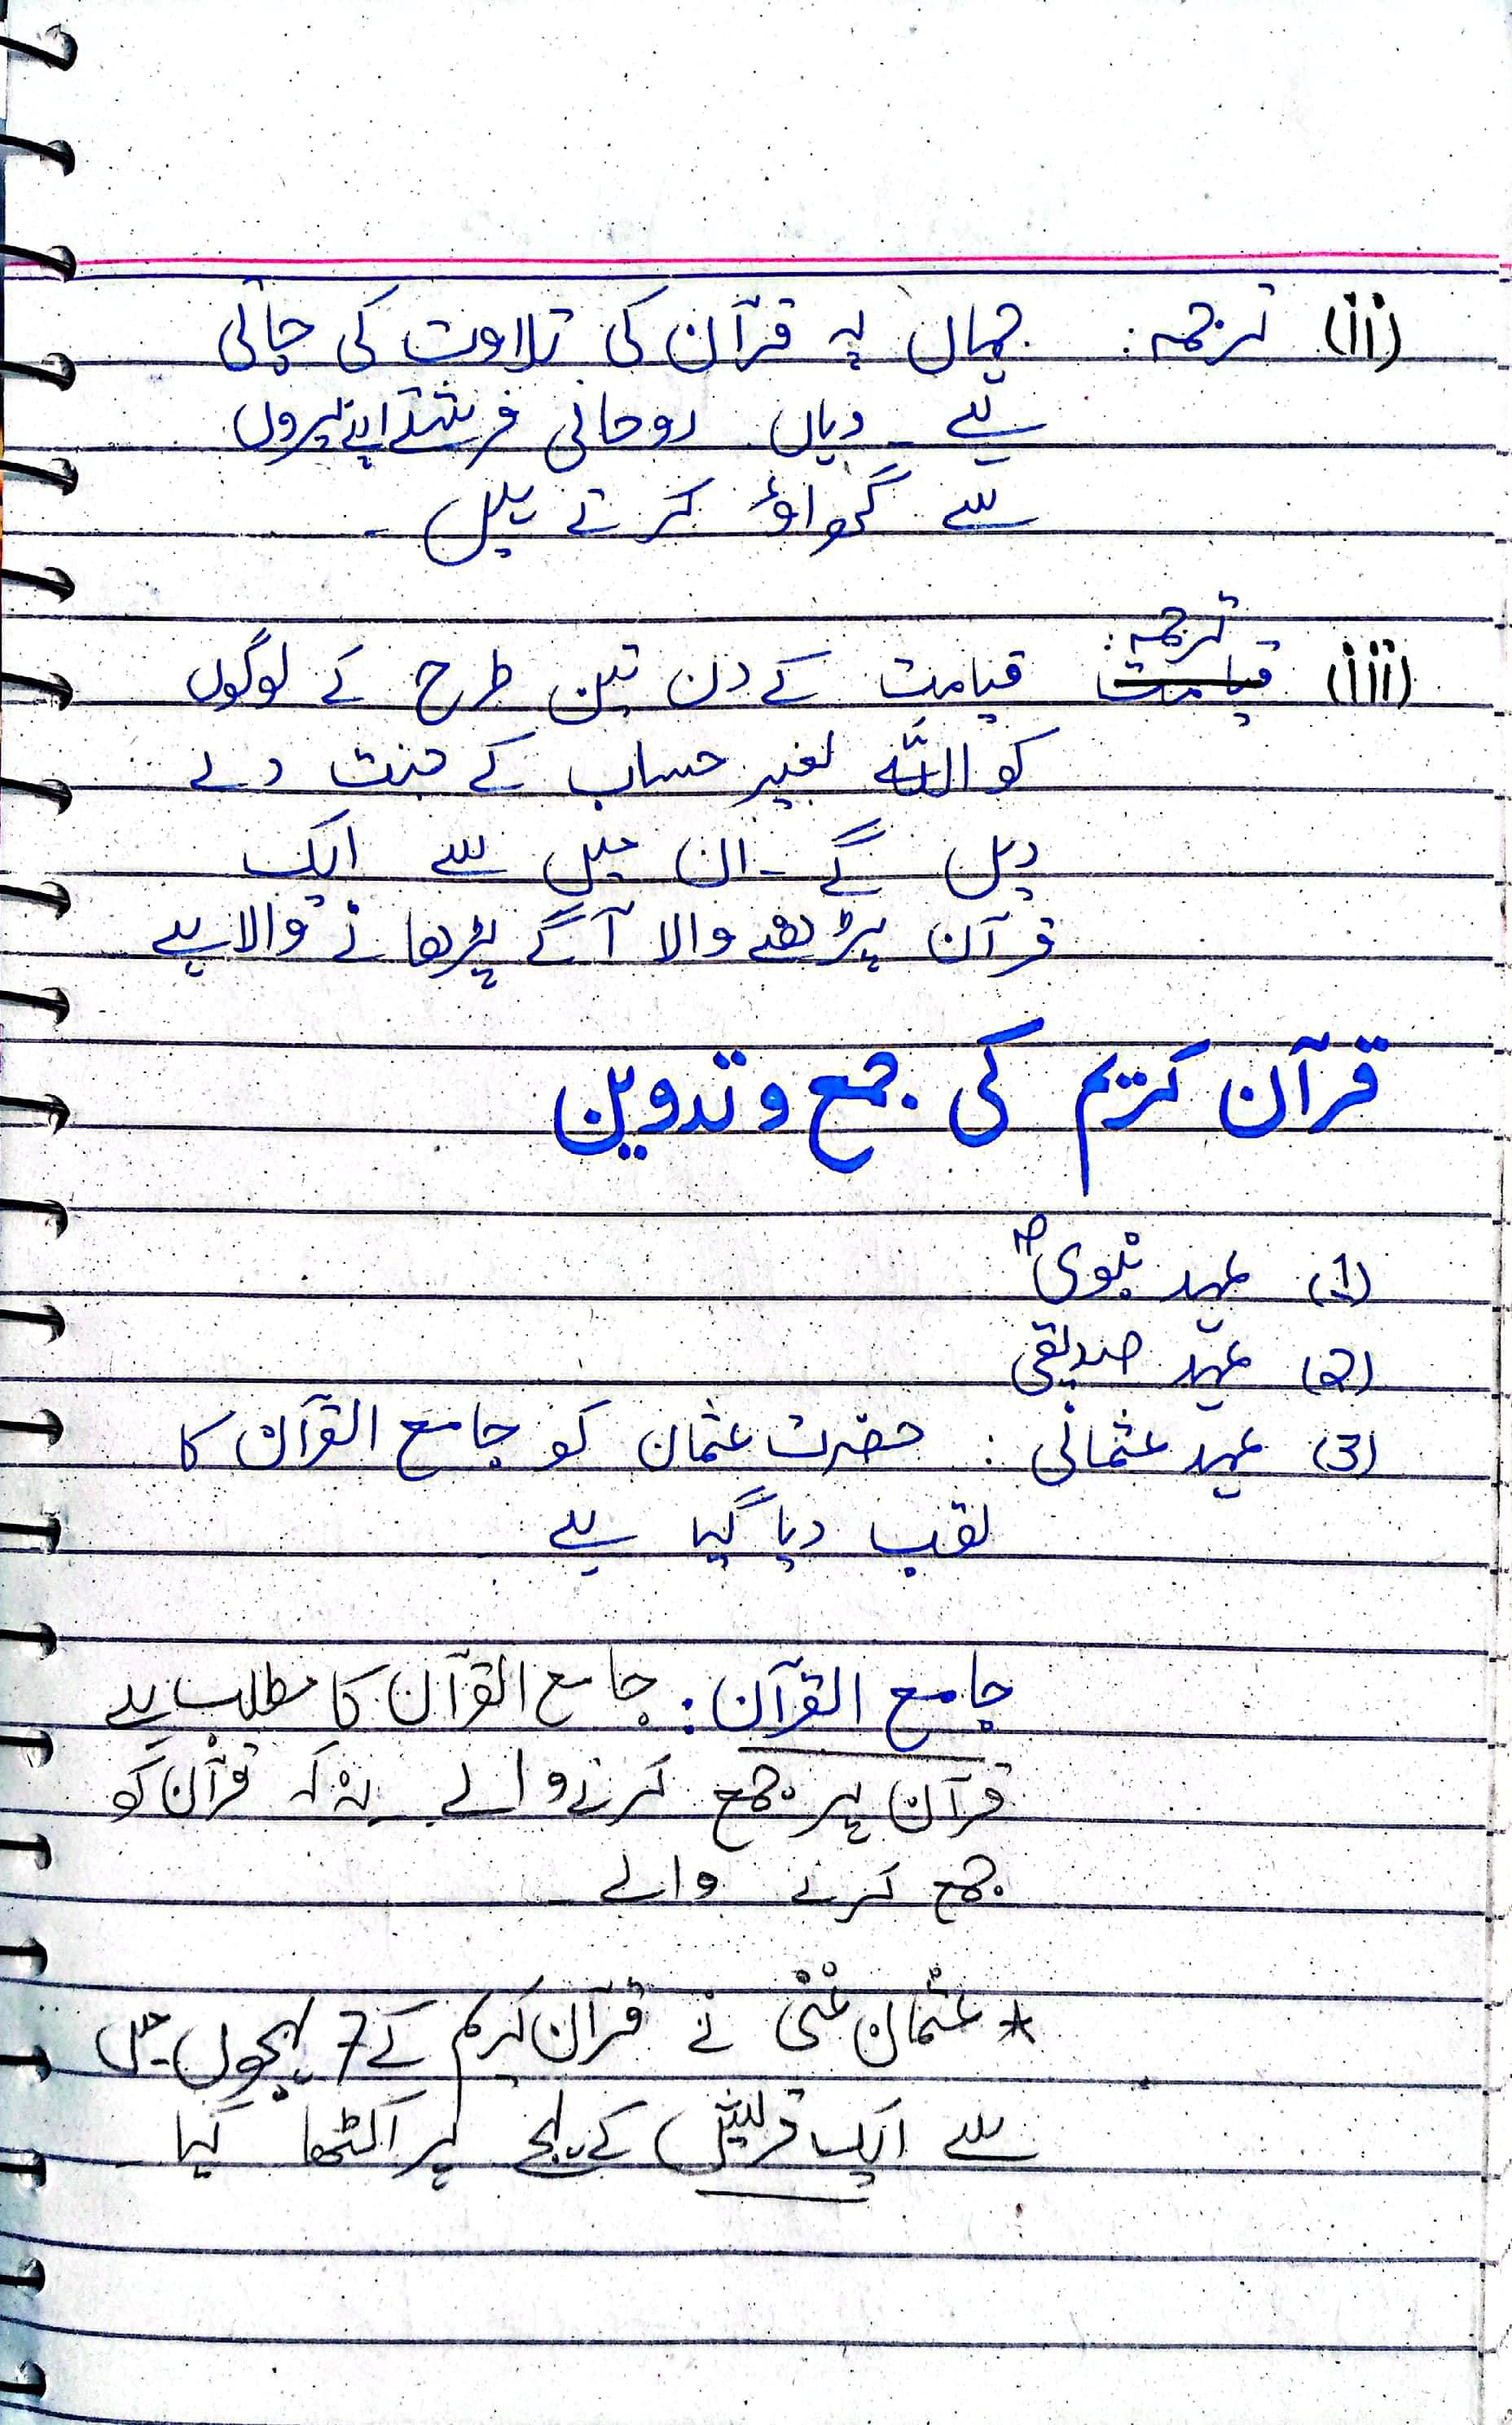 (ii) ترجمہ: جہاں پہ قرآن کی تلاوت کی جاتی
ہے۔ وہاں روحانی فرشتے اپنے پروں
سے گھراؤ کرتے ہیں۔
ترجمہ:
(iii) قیامت قیامت کے دن تین طرح کے لوگوں
کو اللہ بغیر حساب کے جنت دے
دیں گے۔ ان میں سے ایک
قرآن پڑھنے والا آگے پڑھانے والا ہے
قرآن کریم کی جمع و تدوین
(1) عہد نبویؐ
(2) عہد صدیقی
(3) عہد عثمانی: حضرت عثمان کو جامع القرآن کا
لقب دیا گیا ہے
جامع القرآن: جامع القرآن کا مطلب ہے
قرآن پر جمع کرنے والے نہ کہ قرآن کو
جمع کرنے والے۔
* عثمان غنی نے قرآن کریم کے 7 لہجوں میں
سے ایک قریش کے لہجے پر اکٹھا کیا۔